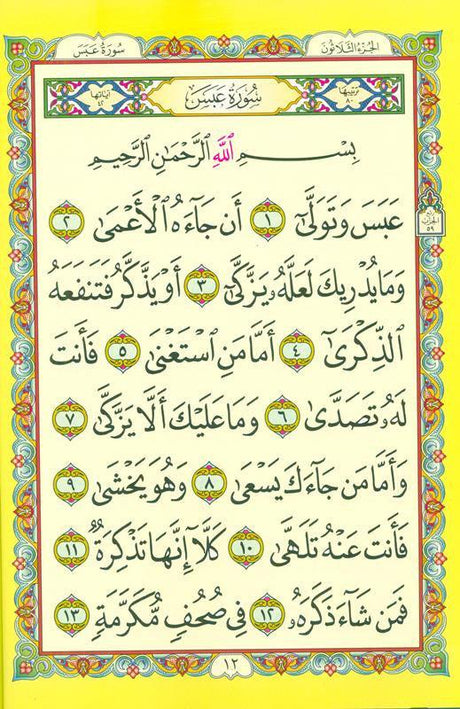 الجزء الثلاثون
سورة عبس
ترتيبها
٨٠
سُورَةُ عَبَسَ
آياتها
٤٢
بِسْمِ ٱللَّهِ ٱلرَّحْمَٰنِ ٱلرَّحِيمِ
عَبَسَ وَتَوَلَّىٰٓ ١ أَن جَآءَهُ ٱلْأَعْمَىٰ ٢
وَمَا يُدْرِيكَ لَعَلَّهُۥ يَزَّكَّىٰٓ ٣ أَوْ يَذَّكَّرُ فَتَنفَعَهُ
ٱلذِّكْرَىٰٓ ٤ أَمَّا مَنِ ٱسْتَغْنَىٰ ٥ فَأَنتَ
لَهُۥ تَصَدَّىٰ ٦ وَمَا عَلَيْكَ أَلَّا يَزَّكَّىٰ ٧
وَأَمَّا مَن جَآءَكَ يَسْعَىٰ ٨ وَهُوَ يَخْشَىٰ ٩
فَأَنتَ عَنْهُ تَلَهَّىٰ ١٠ كَلَّآ إِنَّهَا تَذْكِرَةٌ ١١
فَمَن شَآءَ ذَكَرَهُۥ ١٢ فِى صُحُفٍ مُّكَرَّمَةٍ ١٣
الحزب
٥٩
١٢